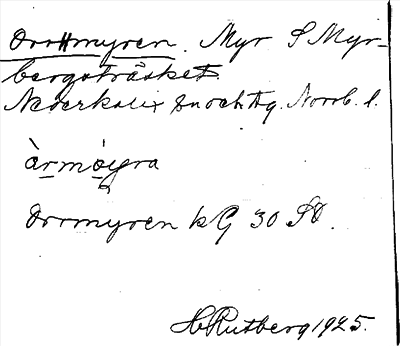 Orrmyren. Myr S Myr-
bergsträsket
Nederkalix sn och tg. Norrb. l.
àrmøyra
Orrmyren kG 30 SO.
H Rutberg 1925.